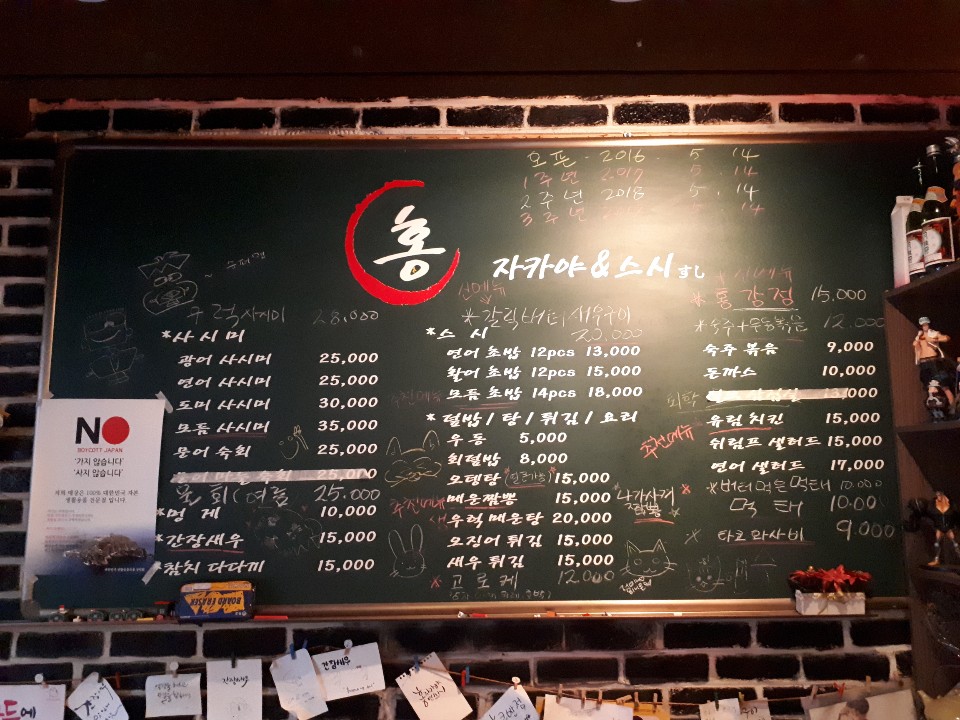 오픈 . 2016 . 5 . 14
1주년 2017 5 . 14
2주년 2018 5 . 14
3주년 5 . 14
홍
자카야 & 스시 すし
우럭사시미 28,000
*사시미
광어 사시미 25,000
연어 사시미 25,000
도미 사시미 30,000
모듬 사시미 35,000
문어 숙회 25,000
25,000
물회(여름 25.000
*멍게 10,000
*간장새우 15,000
*참치 다다끼 15,000
신메뉴
*갈릭버터새우구이
20,000
*스시
연어 초밥 12pcs 13,000
활어 초밥 12pcs 15,000
모듬 초밥 14pcs 18,000
*덮밥/탕/튀김/요리
우동 5,000
회덮밥 8,000
오뎅탕 15,000
추천메뉴 매운짬뽕 15,000
우럭 매운탕 20,000
오징어 튀김 15,000
새우 튀김 15,000
고로케 12.000
나가사끼
짬뽕
홍깡정 15,000
*숙주+우동볶음 12.000
숙주 볶음 9,000
돈까스 10,000
퇴학 13,000
추천메뉴
유림 치킨 15,000
쉬림프 샐러드 15,000
연어 샐러드 17,000
*버터먹은먹태 10.000
먹태 10.00
타코와사비 9.000
NO
BOYCOTT JAPAN
'가지 않습니다'
'사지 않습니다'
저희 매장은 100% 대한민국 자본
BOARD ERASER
간장새우
간장새우